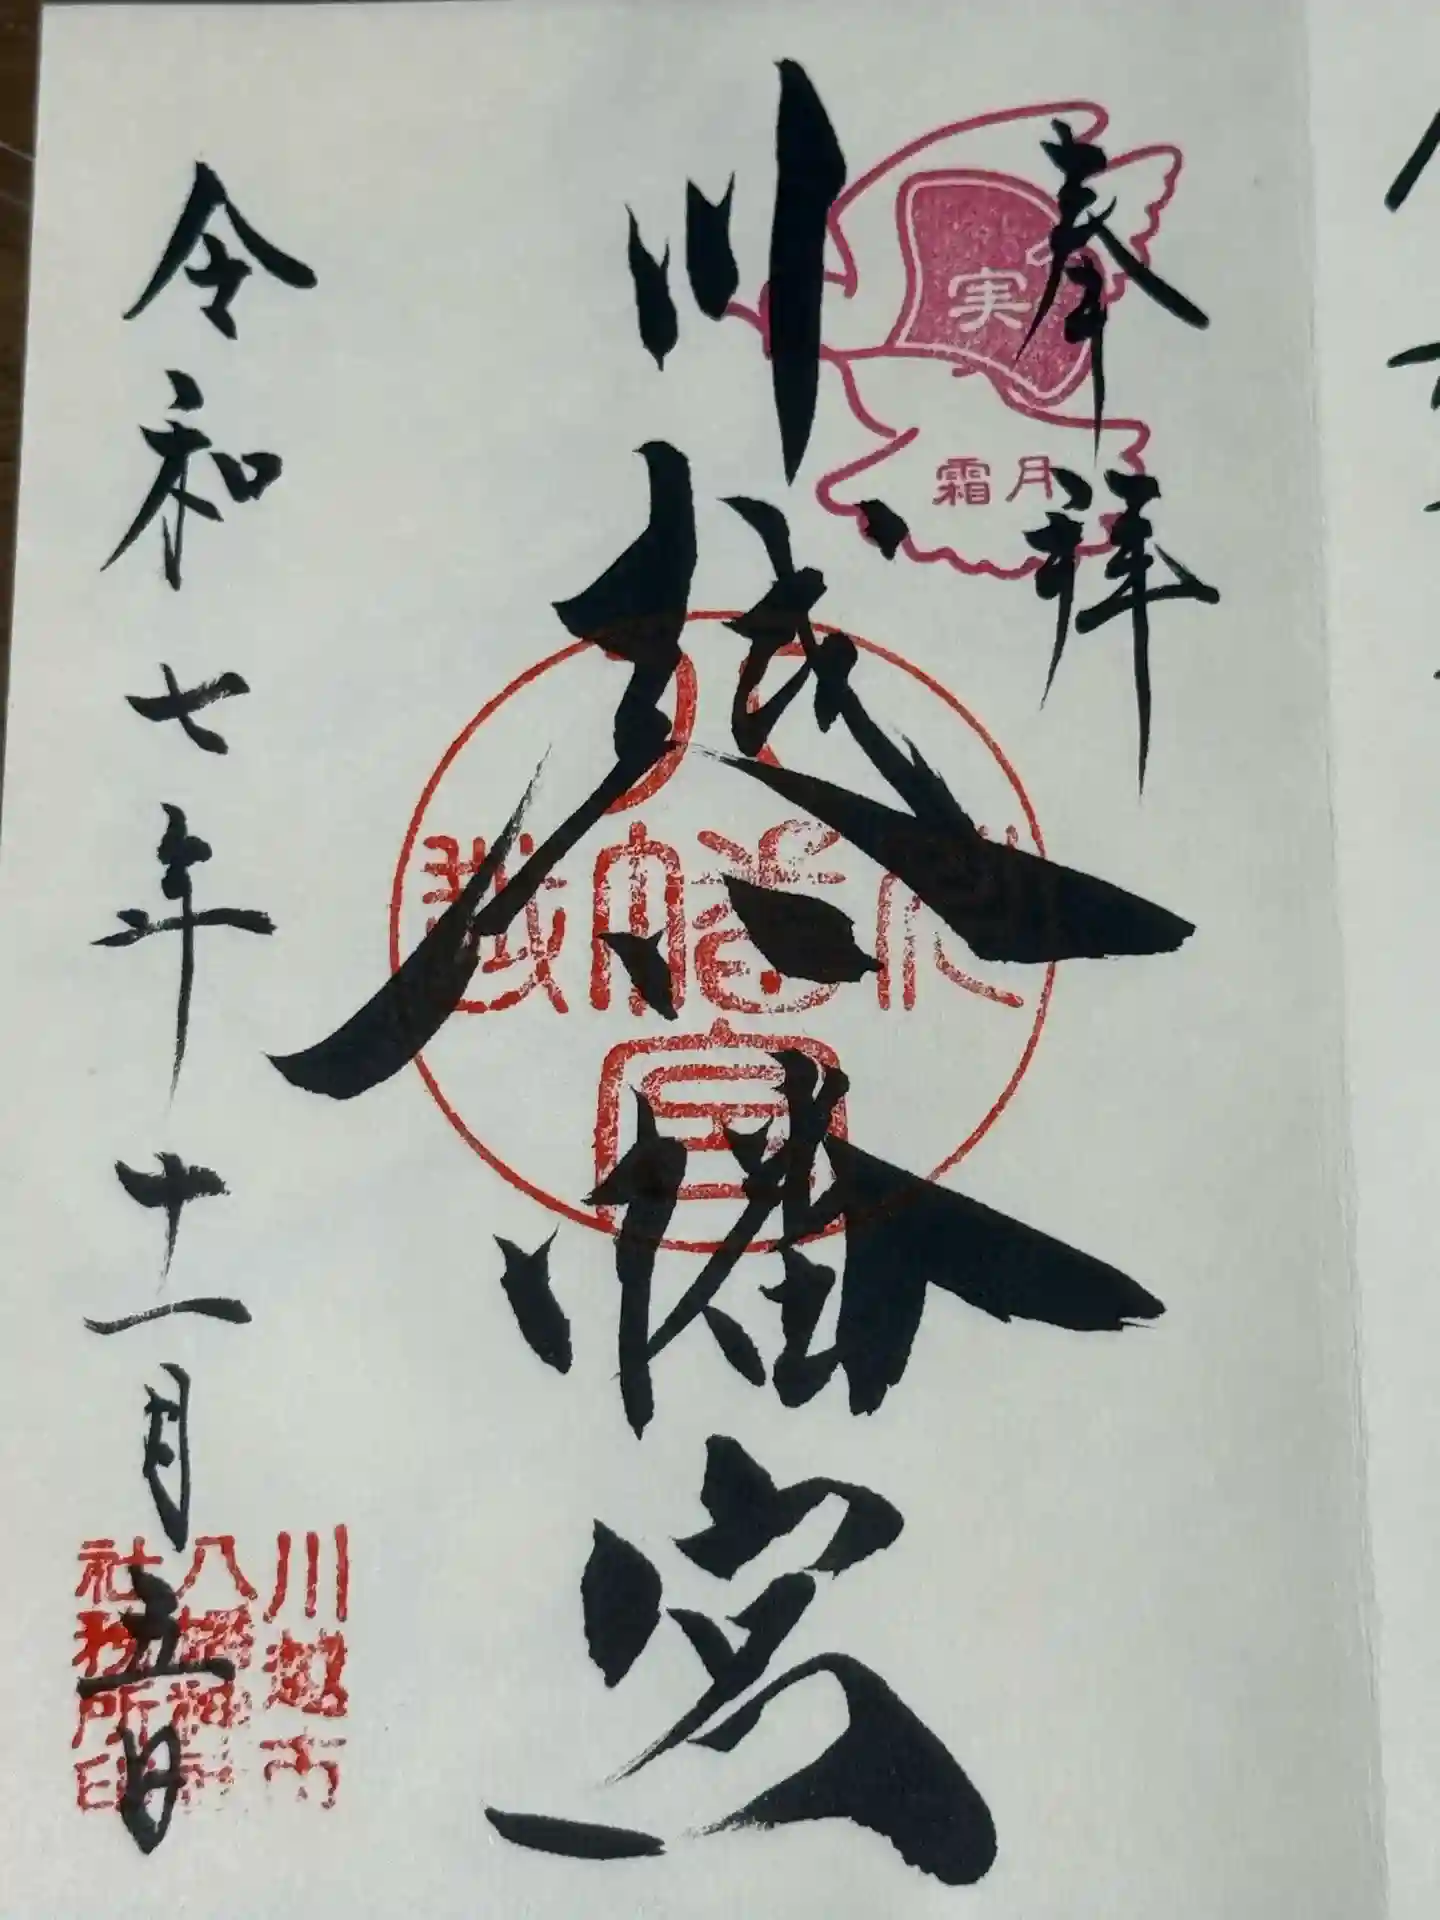 奉拝
実
霜月
川越八幡宮
八幡宮
川越市
八幡神社
社務所印
令和七年十一月五日